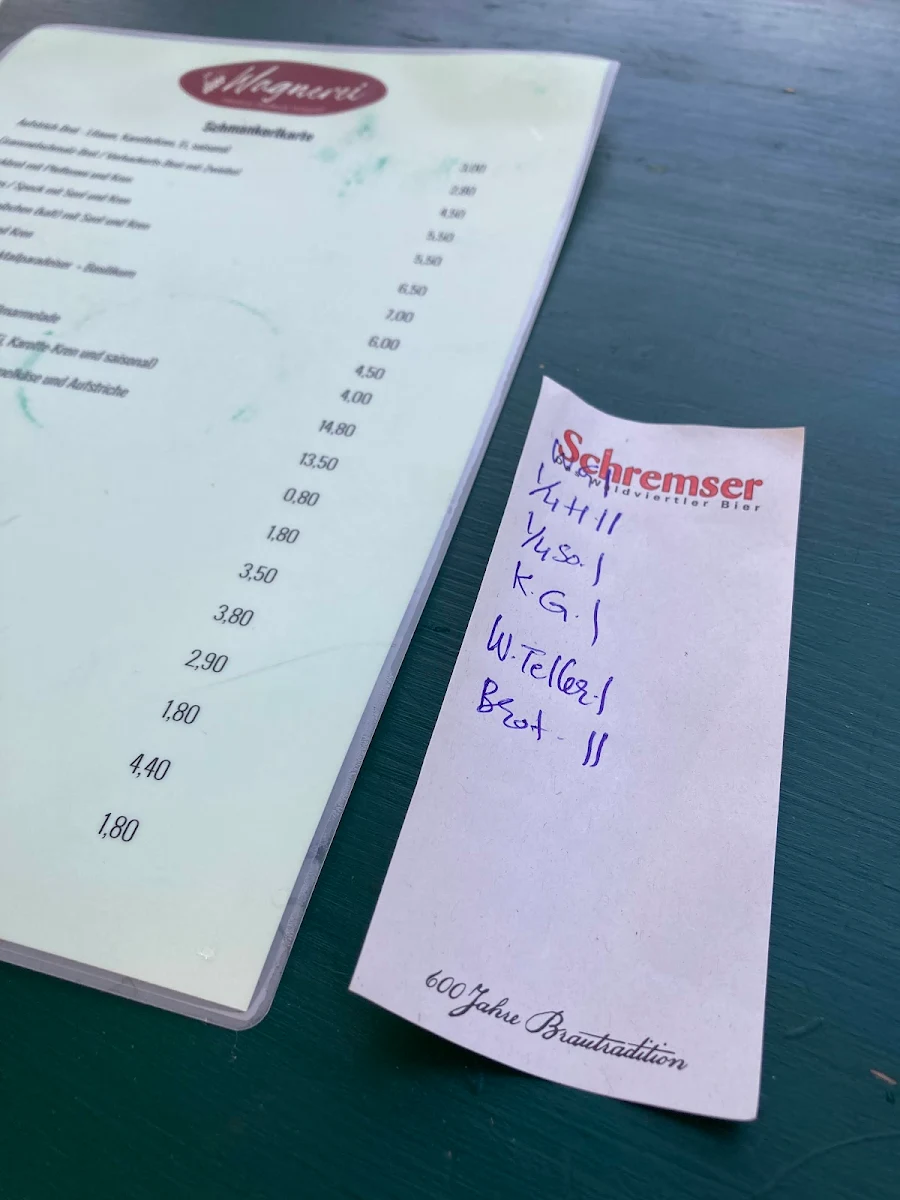 Wagnerei
Schmankerlkarte
Aufstrich Brot - Liteuer, Karottekren, Ei, saisonal 3,00
Grammelschmalz Brot / Verhackerts Brot mit Zwiebel 2,80
mit Pfefferoni und Kren 4,50
/ Speck mit Senf und Kren 5,50
(kalt) mit Senf und Kren 5,50
und Kren 6,50
- Basilikum 7,00
6,00
marmelade 4,50
4,00
Karotte-Kren und saisonal) 14,80
und Aufstriche 13,50
0,80
1,80
3,50
3,80
2,90
1,80
4,40
1,80
Schremser
Waldviertler Bier
1/4 H. II
1/4 So. I
K. G. I
W. Teller I
Brot - II
600 Jahre Brautradition